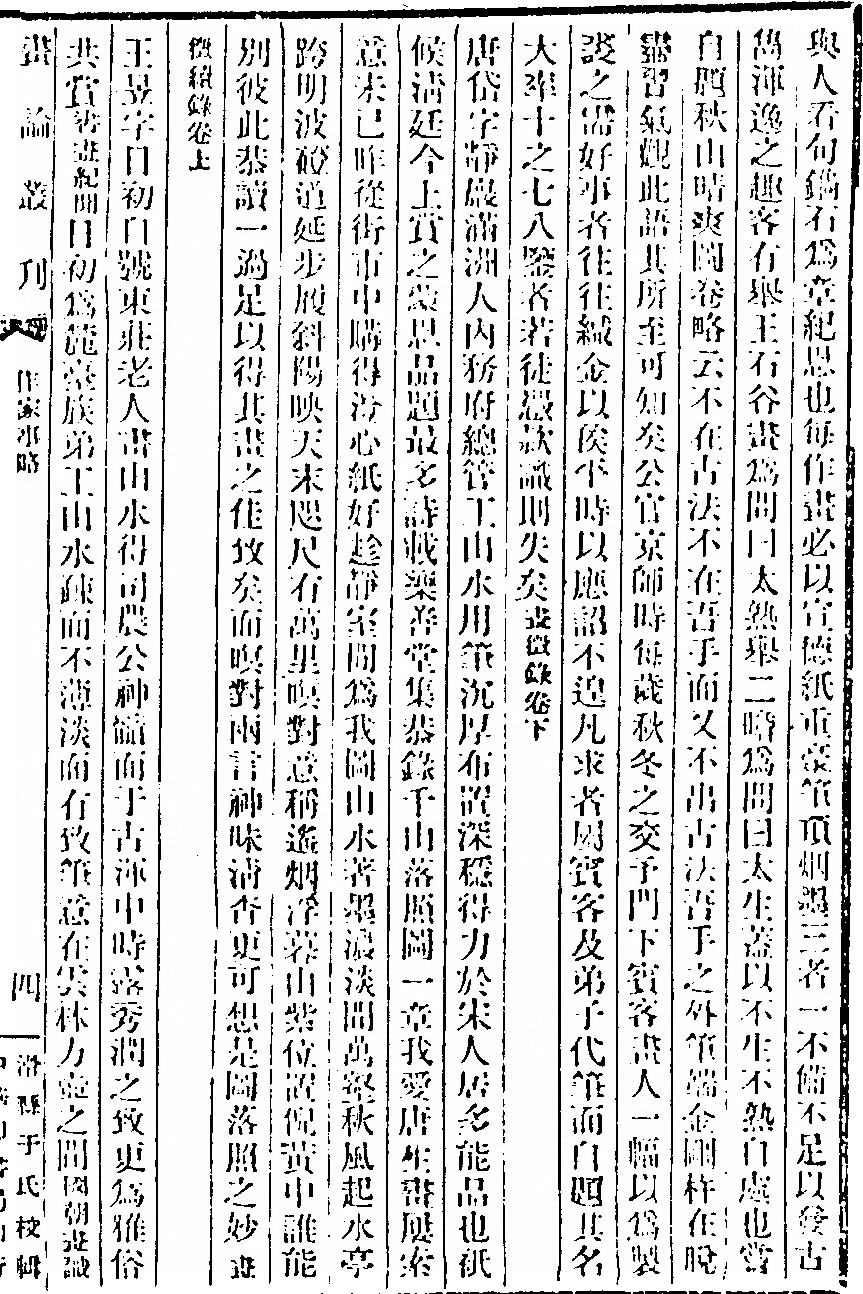 與人看句鐫石爲章紀恩也每作畫必以宣德紙重毫筆頂烟墨三者一不備不足以發古
雋渾逸之趣客有舉王石谷畫爲問曰太熟舉二瞻爲問曰太生蓋以不生不熟自處也嘗
自題秋山晴爽圖卷略云不在古法不在吾手而又不出古法吾手之外筆端金剛杵在脫
盡習氣觀此語其所至可知矣公官京師時每歲秋冬之交予門下賓客畫人一幅以爲製
裘之需好事者往往緘金以俟平時以應詔不遑凡求者屬賓客及弟子代筆而自題其名
大率十之七八鑒者若徒憑款識則失矣畫徵錄卷下
唐岱字靜巖滿洲人內務府總管工山水用筆沉厚布置深穩得力於宋人居多能品也祇
候淸廷今上賞之蒙恩品題最多詩載樂善堂集恭錄千山落照圖一章我愛唐生畫屢索
意未已昨從街市中購得澄心紙好趁靜室閒爲我圖山水著墨濃淡間萬壑秋風起水亭
跨明波磴道延步屧斜陽映天末咫尺有萬里嗅對意稱遙烟浮暮山紫位置倪黃中誰能
別彼此恭讀一過足以得其畫之佳致矣而嗅對兩言神味淸杳更可想是圖落照之妙畫
徵續錄卷上
王昱字日初自號東莊老人畫山水得司農公神髓而于古渾中時露秀潤之致更爲雅俗
共賞書畫紀聞日初爲麓臺族弟工山水疎而不薄淡而有致筆意在雲林方壺之間國朝畫識
畫論叢刊
作家事略
四
滑縣于氏校輯